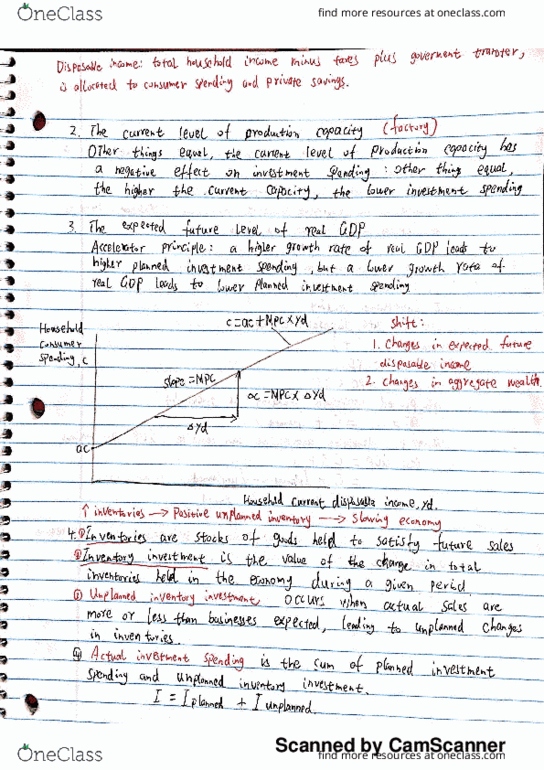 OneClass
find more resources at oneclass.com
Disposable income: total household income minus taxes plus goverment transfer,
is allocated to consumer spending and private savings.
2. The current level of production capacity (factory)
Other things equal, the current level of production capacity has
a negative effect on investment spending : other thing equal,
the higher the current capacity, the lower investment spending
3. The expected future level of real GDP
Accelerator principle : a higher growth rate of real GDP leads to
higher planned investment spending, but a lower growth rate of
real GDP leads to lower planned investment spending
c=ac+MPC×Yd
Household
Consumer
Spending, c
slope=MPC
∝=MPC× ΔYd
ΔYd
ac
Household current disposable income, Yd.
shift:
1. Changes in expected future
disposable income
2. changes in aggregate wealth.
↑ inventories → Positive unplanned inventory → Slowing economy
4. ① Inventories are stocks of goods held to satisfy future sales
② Inventory investment is the value of the change in total
inventories held in the economy during a given period
③ Unplanned inventory investment occurs when actual sales are
more or less than businesses expected, leading to unplanned changes
in inventories.
④ Actual investment spending is the sum of planned investment
spending and unplanned inventory investment.
I = I planned + I unplanned
Scanned by CamScanner
OneClass
find more resources at oneclass.com